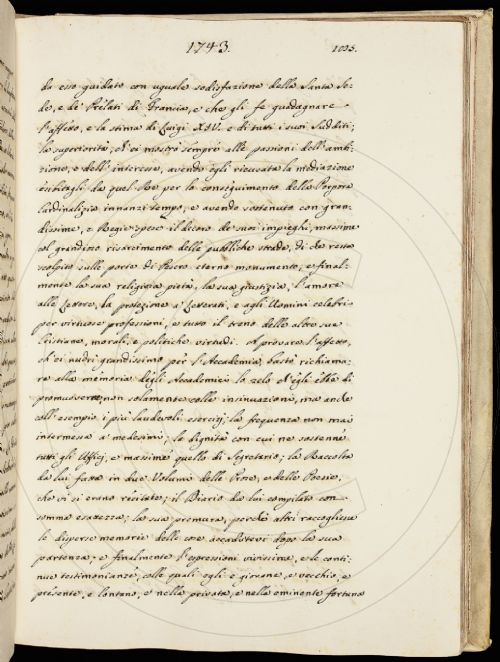 1743.
1005.
da esso guidato con uguale sodisfazione della Santa Se-
de, e de' Prelati di Francia, e che gli fe guadagnare
l'affetto, e la stima di Luigi XIV. e di tutti i suoi Sudditi;
la superiorità, ch'ei mostrò sempre alle passioni dell'ambi-
zione, e dell'interesse, avendo egli ricusata la mediazione
esibitagli da quel Re per lo conseguimento della Porpora
Cardinalizia innanzi tempo, e avendo sostenuto con gran-
dissime, e Regie spese il decoro de' suoi impieghi, massime
col grandioso risarcimento delle pubbliche strade, di che resta
scolpito sulle porte di Pesero eterno monumento; e final-
mente la sua religiosa pietà, la sua giustizia, l'amore
alle Lettere, la protezione a' Letterati, e agli Uomini celebri
per virtuose professioni, e tutto il treno delle altre sue
Cristiane, morali, e politiche virtudi. A provare l'affetto,
ch'ei nudrì grandissimo per l'Accademia, bastò richiama-
re alla memoria degli Accademici lo zelo ch'egli ebbe di
promuoverne, non solamente colle insinuazioni, ma anche
coll'esempio, i più laudevoli esercizj; la frequenza non mai
intermessa a medesimi; la dignità con cui ne sostenne
tutti gli Uffizj, e massime quello di Segretario; la Raccolta
da lui fatta in due Volumi delle Prose, e delle Poesie,
che vi si erano recitate; il Diario da lui compilato con
somma esatezza; la sua premura, perchè altri raccogliesse
le disperse memorie delle cose accadutevi dopo la sua
partenza; e finalmente l'espressioni vivissime, e le conti-
nue testimonianze, colle quali egli e giovane, e vecchio, e
presente, e lontano, e nella privata, e nella eminente fortuna